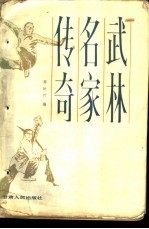 武林
名家
传奇
甘肃人民出版社